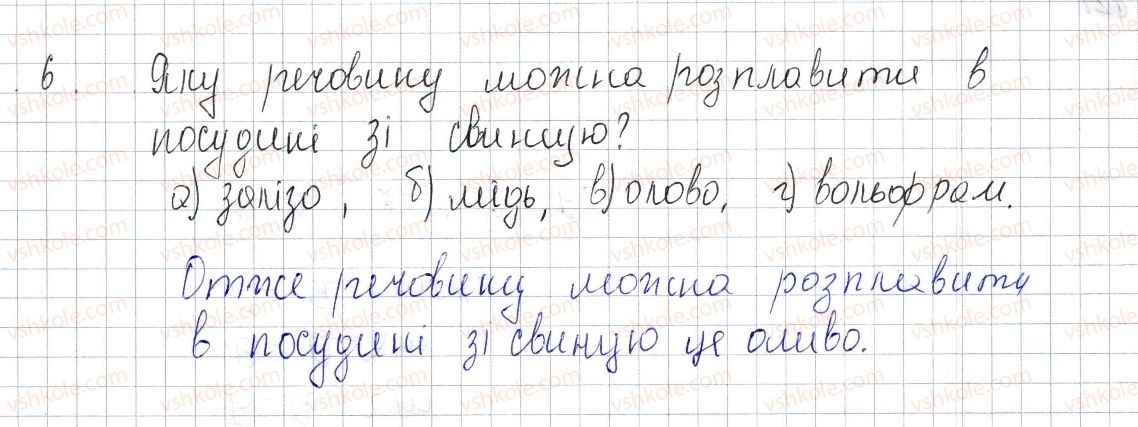 6. Яку речовину можна розплавити в
посудині зі свинцю?
а) залізо, б) мідь, в) олово, г) вольфрам.
Отже речовину можна розплавити
в посудині зі свинцю це оливо.